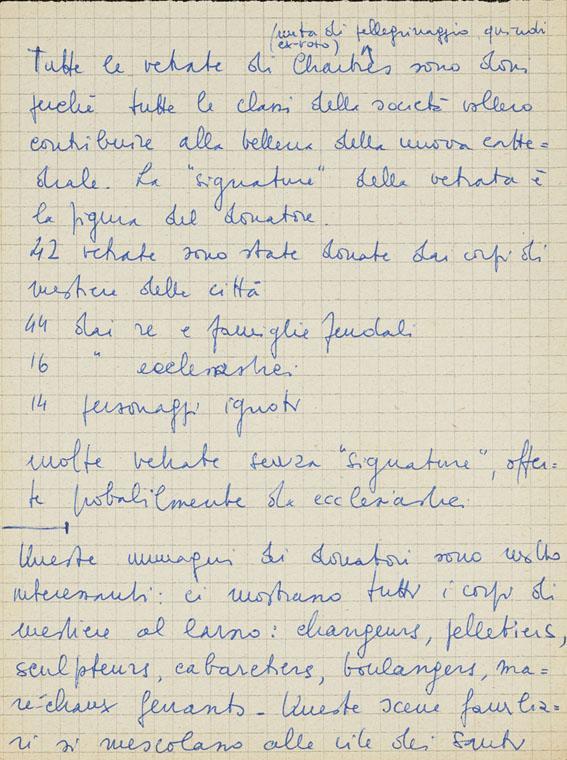 (meta di pellegrinaggio quindi
ex-voto)
Tutte le vetrate di Chartres sono doni
perché tutte le classi della società vollero
contribuire alla bellezza della nuova catte=
drale. La "signature" della vetrata è
la figura del donatore.
42 vetrate sono state donate dai corpi di
mestiere delle città
44 dai re e famiglie feudali
16 " ecclesiastici
14 personaggi ignoti
molte vetrate senza "signature", offer=
te probabilmente da ecclesiastici
Queste immagini dei donatori sono molto
interessanti: ci mostrano tutti i corpi di
mestiere al lavoro: changeurs, pelletiers,
sculpteurs, cabaretiers, boulangers, ma=
réchaux ferrants - Queste scene familia=
ri si mescolano alle vite dei Santi